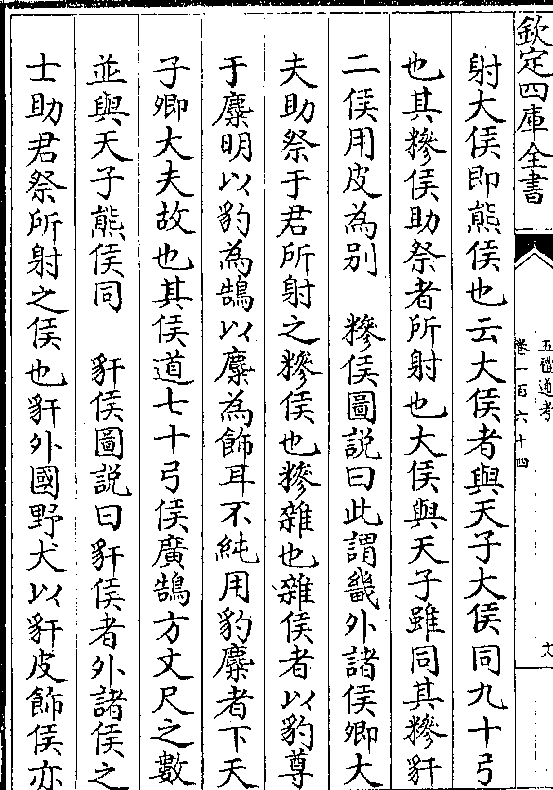 欽定四庫全書
五禮通考
卷一百六十四
文
射大侯即熊侯也云大侯者與天子大侯同九十弓
也其糝侯助祭者所射也大侯與天子雖同其糝豻
二侯用皮為别　糝侯圖説曰此謂畿外諸侯卿大
夫助祭于君所射之糝侯也糝雜也雜侯者以豹尊
于麋明以豹為鵠以麋為飾耳不純用豹麋者下天
子卿大夫故也其侯道七十弓侯廣鵠方丈尺之數
並與天子熊侯同　豻侯圖説曰豻侯者外諸侯之
士助君祭所射之侯也豻外國野犬以豻皮飾侯亦